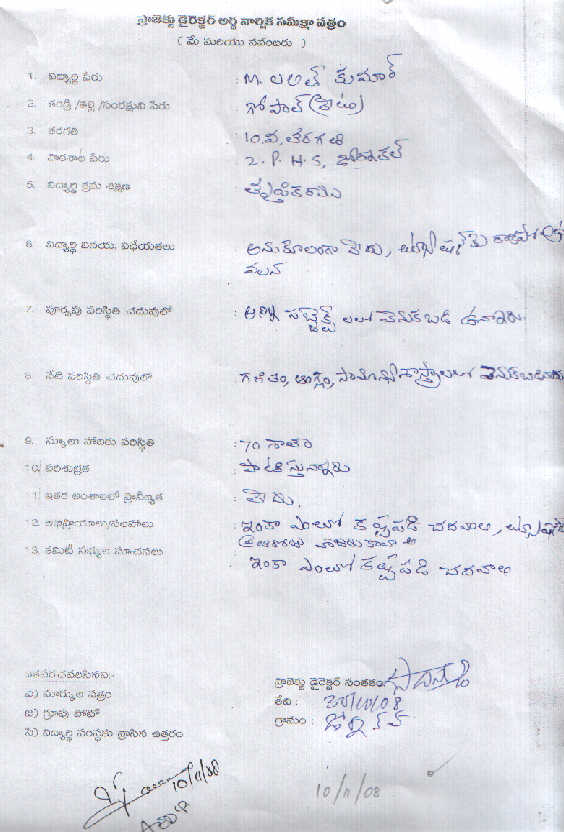 ప్రాజెక్టు డైరెక్టర్ అర్ధ వార్షిక సమీక్షా పత్రం
( మే మరియు నవంబరు )
1. విద్యార్థి పేరు : M. లలిత్ కుమార్
2. తండ్రి /తల్లి /సంరక్షకుని పేరు : గోపాల్ (లేటు)
3. తరగతి : 10.వ. తరగతి
4. పాఠశాల పేరు : Z. P. H. S,
5. విద్యార్థి క్రమ శిక్షణ :
6. విద్యార్థి వినయ, విధేయతలు : అనుకూలంగా లేదు,
వలన
7. పూర్వపు పరిస్థితి చదువులో : అన్ని సబ్జెక్ట్స్ లలో వెనుకబడి ఉన్నారు.
8. నేటి పరిస్థితి చదువులో : గణితం, ఆంగ్లం, సామాన్యశాస్త్రాలలో
9. స్కూలు హాజరు పరిస్థితి : 70 శాతం
10. పరిశుభ్రత : పాటిస్తున్నారు
11. ఇతర అంశాలలో ప్రావీణ్యత : లేదు.
12. అభిప్రాయాలు/సలహాలు : ఇంకా ఎంతో కష్టపడి చదవాలి,
ప్రతిరోజు హాజరు కావాలి
13. కమిటీ సభ్యుల సూచనలు : ఇంకా ఎంతో కష్టపడి చదవాలి
జతపరచవలసినవి:-
ఎ) మార్కుల పత్రం
బి) గ్రూపు ఫోటో
సి) విద్యార్థి సంస్థకు వ్రాసిన ఉత్తరం
ప్రాజెక్టు డైరెక్టర్ సంతకం:
తేది : 30/10/08
గ్రామం :
10/11/08
10/11/08